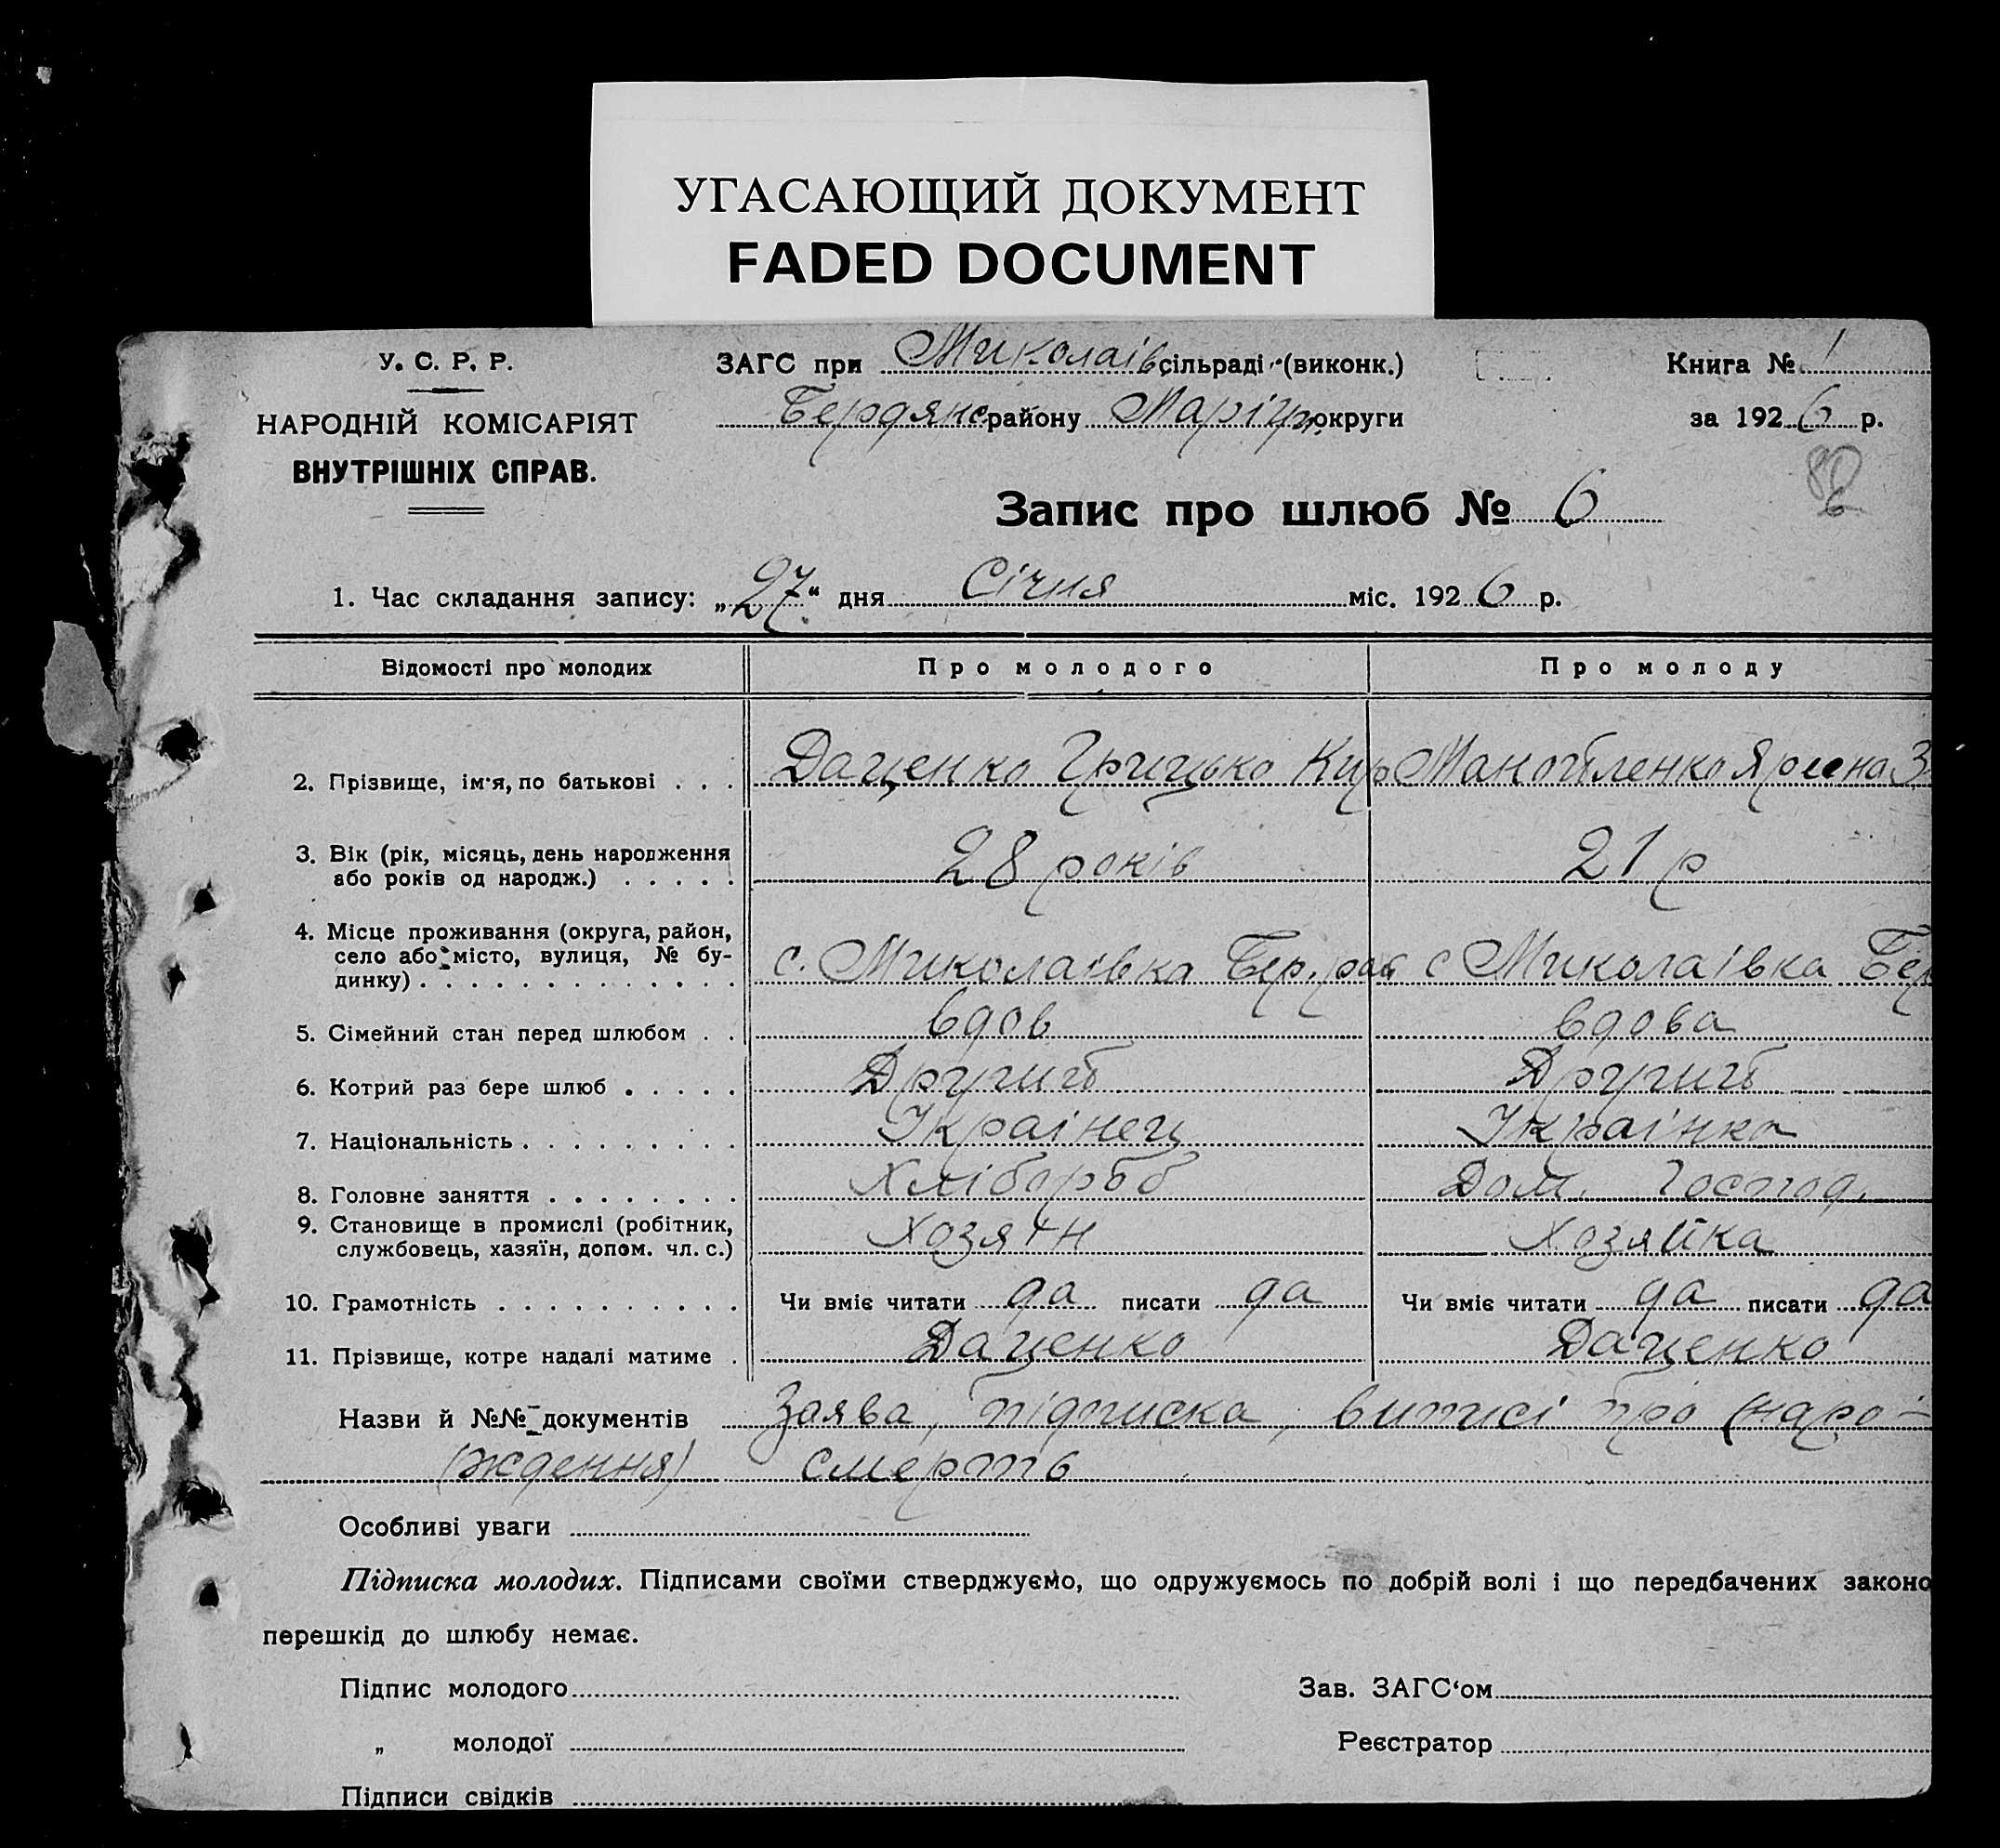 УГАСАЮЩИЙ ДОКУМЕНТ
FADED DOCUMENT
У. С. Р. Р.
НАРОДНІЙ КОМІСАРІЯТ
ВНУТРІШНІХ СПРАВ.
ЗАГС при Миколаїв сільраді (виконк.)
Бердянс району Маріуп. округи
Книга № 1
за 1926 р.
82
Запис про шлюб № 6
1. Час складання запису: „27“ дня Січня міс. 1926 р.
Відомості про молодих Про молодого Про молоду
2. Прізвище, ім'я, по батькові . . . Даценко Грицько Кир Манойленко Ярина З
3. Вік (рік, місяць, день народження
або років од народж.) . . . . . 28 років 21 р
4. Місце проживання (округа, район,
село або місто, вулиця, № бу-
динку) . . . . . . . . . . . . . с. Миколаівка Бер. рай с Миколаівка Бер
5. Сімейний стан перед шлюбом . . вдов вдова
6. Котрий раз бере шлюб . . . . . Другий Другий
7. Національність . . . . . . . . . Украінец Украінка
8. Головне заняття . . . . . . . . Хлібороб Дом. Господ.
9. Становище в промислі (робітник,
службовець, хазяїн, допом. чл. с.) Хозяін Хозяйка
10. Грамотність . . . . . . . . . . Чи вміє читати да писати да Чи вміє читати да писати да
11. Прізвище, котре надалі матиме . Даценко Даценко
Назви й №№ документів Заява, підписка, виписі про (наро-
(ждення) смерть
Особливі уваги
Підписка молодих. Підписами своїми стверджуємо, що одружуємось по добрій волі і що передбачених законо
перешкід до шлюбу немає.
Підпис молодого Зав. ЗАГС'ом
„ молодої Реєстратор
Підписи свідків